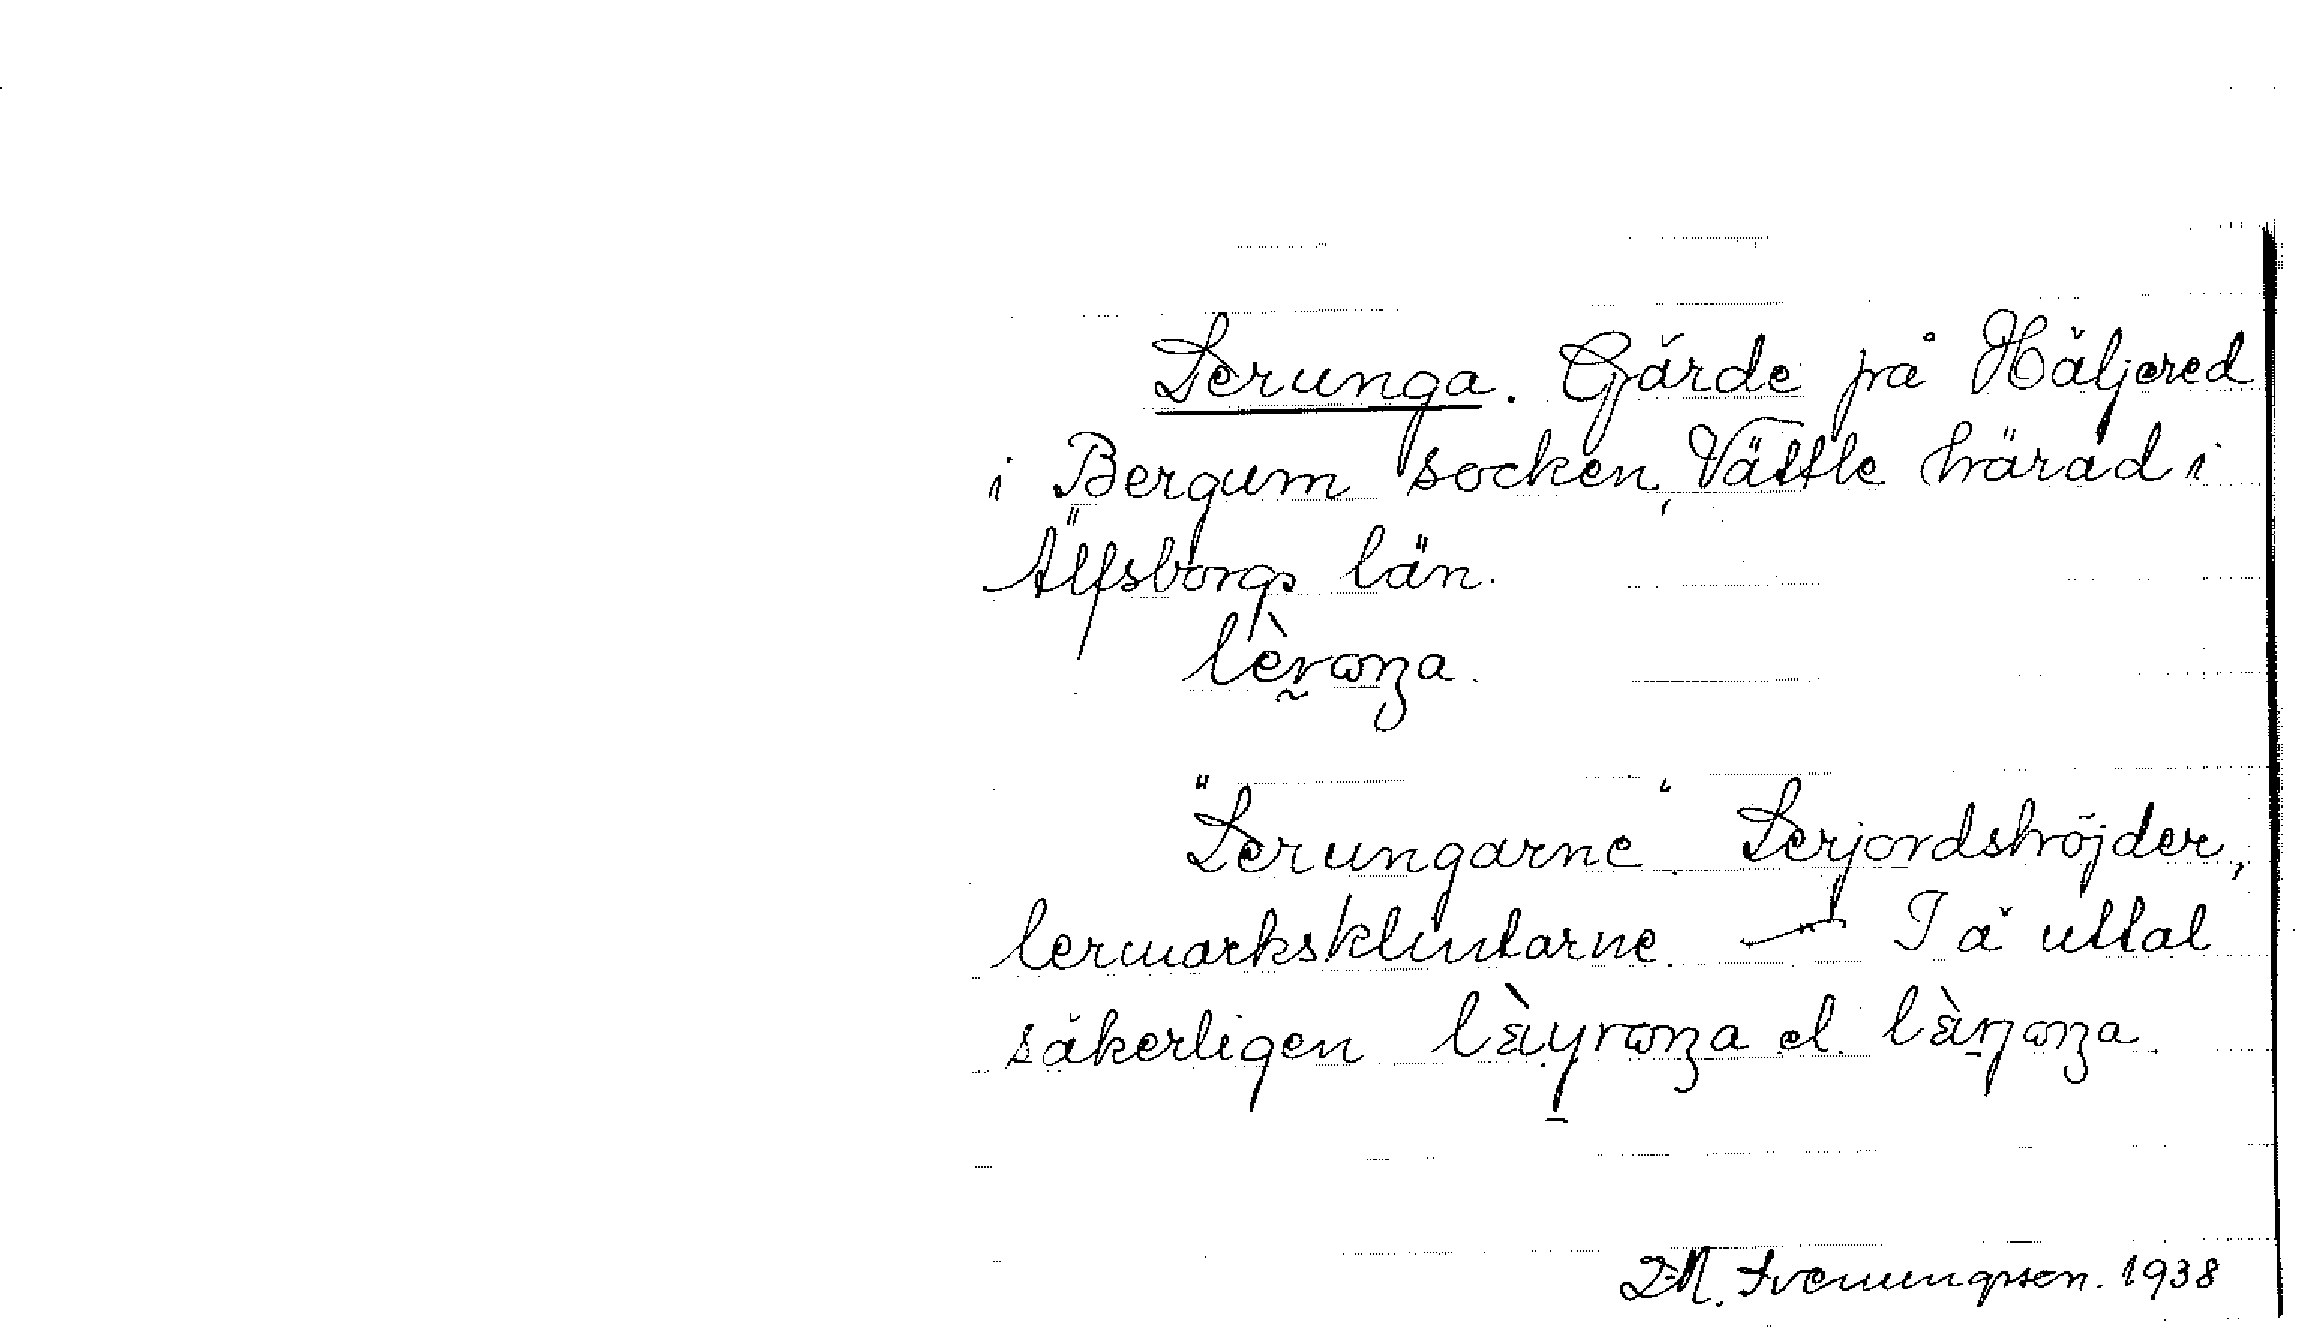 Lerunga. Gärde på Häljered
i Bergum socken, Vättle härad i
Älfsborgs län.
lèrωŋa.
"Lerungarne". Lerjordshöjder,
lermarksklintarne. — I ä uttal
säkerligen el.
Svenungsson. 1938